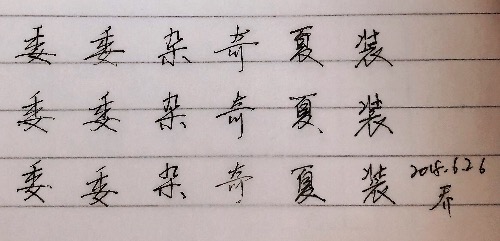 委 委 杂 奇 夏 装
委 委 杂 奇 夏 装
委 委 杂 奇 夏 装 2018.6.26